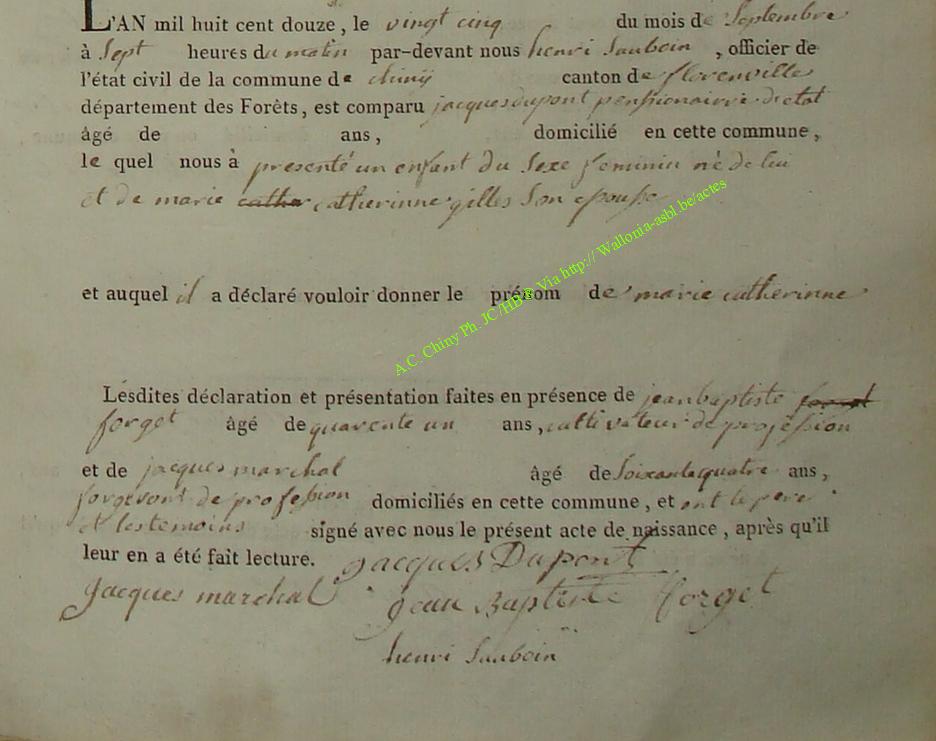 L'AN mil huit cent douze, le vingt cinq du mois de Septembre
à Sept heures du matin par-devant nous henri Sauboin, officier de
l'état civil de la commune de chinij canton de florenville
département des Forêts, est comparu jacques dupont penssionairre d'etat
âgé de ans, domicilié en cette commune,
le quel nous à presenté un enfant du Sexe feminin né de lui
et de marie cather catherinne gilles Son epouse
et auquel il a déclaré vouloir donner le prénom de marie catherinne
Lesdites déclaration et présentation faites en présence de jean baptiste forget
forget âgé de quarente un ans, cultivateur de profession
et de jacques marchal âgé de Soixante quatre ans,
forgeront de profession domiciliés en cette commune, et ont le pere
et les temoins signé avec nous le présent acte de naissance, après qu'il
leur en a été fait lecture. jacques Dupont
jacques marchal jean Baptiste forget
henri Sauboin
A.C. Chiny Ph. JC/HB® Via http:// Wallonia-asbl.be/actes